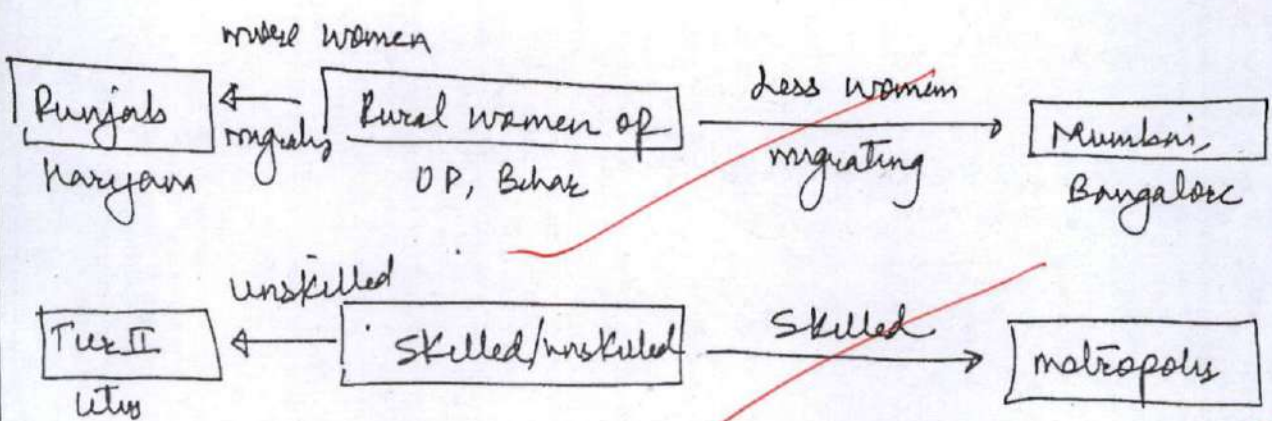 more women
Punjab
Haryana
migrating
Rural women of
UP, Bihar
Less women
migrating
Mumbai,
Bangalore
unskilled
Tier II
cities
Skilled/unskilled
Skilled
metropolys